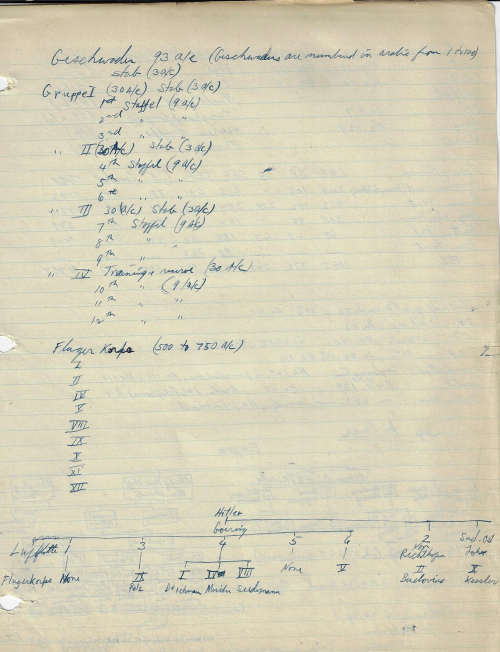 Geschwader 93 a/c (Geschwader are numbered in arabic from 1 to 100)
stab (3 a/c)
Gruppe I (30 A/c) Stab (3 a/c)
1st Staffel (9 a/c)
2nd " "
3rd " "
" II (30 A/c) Stab (3 a/c)
4th Staffel (9 a/c)
5th " "
6th " "
" III 30 a/c) Stab (3 a/c)
7th Staffel (9 A/c)
8th " "
9th " "
" IV Training + reserve (30 A/c)
10th " (9 a/c)
11th " "
12th " "
Flieger Korps (500 to 750 a/c)
I
II
IV
V
VIII
IX
X
XI
XII
Hitler
Goering
Luftflotte 1 3 4 5 6 2 Sud. Ost
Von Richthofen
Fliegerkorps None IX I IV VIII None V II X
Pelz Deichman Seidemann Kessler